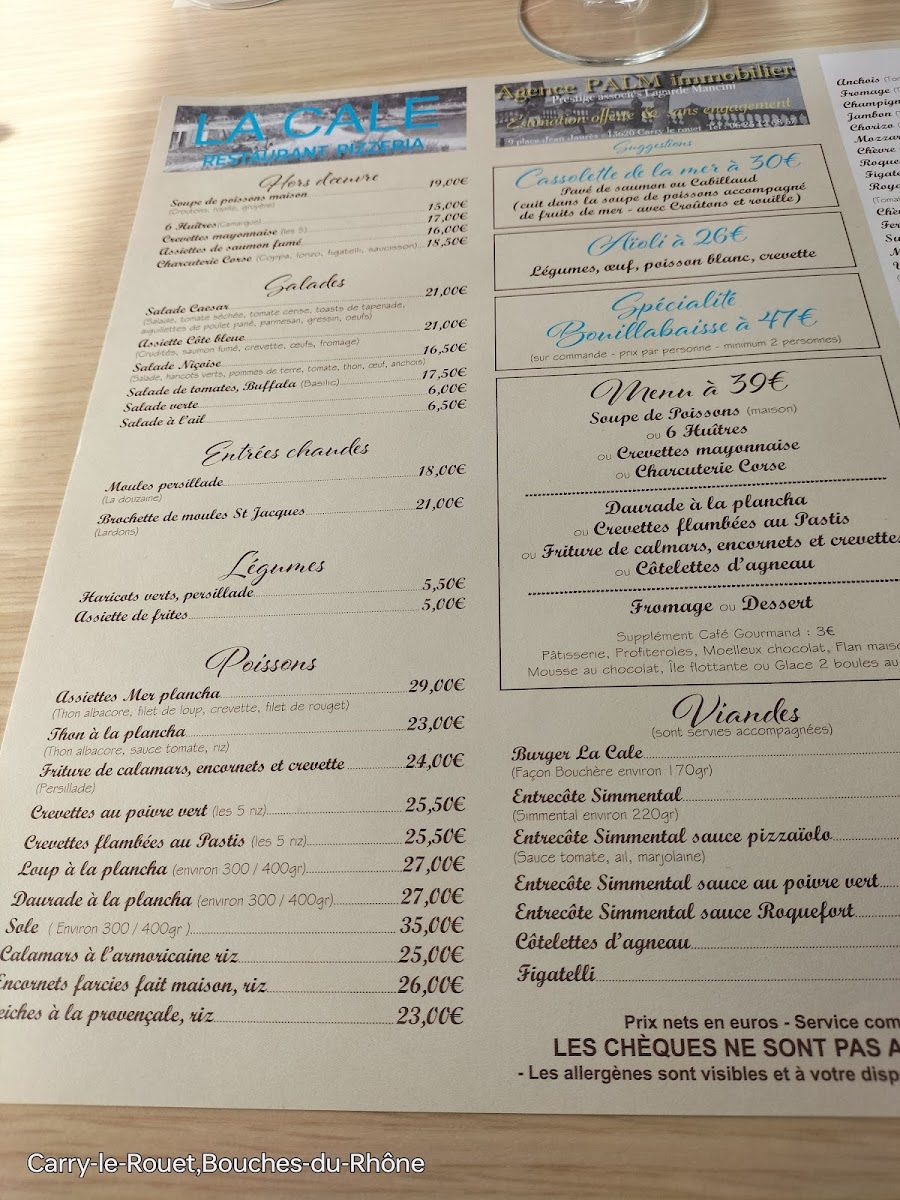 LA CALE
RESTAURANT PIZZERIA
Hors d'œuvre
Soupe de poissons maison 19,00€
(Croutons, rouille, gruyère)
6 Huîtres (Camargue) 15,00€
Crevettes mayonnaise (les 5) 17,00€
Assiettes de saumon fumé 16,00€
Charcuterie Corse (Coppa, lonzo, figatelli, saucisson) 18,50€
Salades
Salade Caesar 21,00€
(Salade, tomate séchée, tomate cerise, toasts de tapenade,
aiguillettes de poulet pané, parmesan, gressin, oeufs)
Assiette Côte bleue 21,00€
(Crudités, saumon fumé, crevette, œufs, fromage)
Salade Niçoise 16,50€
(Salade, haricots verts, pommes de terre, tomate, thon, œuf, anchois)
Salade de tomates, Buffala (Basilic) 17,50€
Salade verte 6,00€
Salade à l'ail 6,50€
Entrées chaudes
Moules persillade 18,00€
(La douzaine)
Brochette de moules St Jacques 21,00€
(Lardons)
Légumes
Haricots verts, persillade 5,50€
Assiette de frites 5,00€
Poissons
Assiettes Mer plancha 29,00€
(Thon albacore, filet de loup, crevette, filet de rouget)
Thon à la plancha 23,00€
(Thon albacore, sauce tomate, riz)
Friture de calamars, encornets et crevette 24,00€
(Persillade)
Crevettes au poivre vert (les 5 riz) 25,50€
Crevettes flambées au Pastis (les 5 riz) 25,50€
Loup à la plancha (environ 300 / 400gr) 27,00€
Daurade à la plancha (environ 300 / 400gr) 27,00€
Sole ( Environ 300 / 400gr ) 35,00€
Calamars à l'armoricaine riz 25,00€
Encornets farcies fait maison, riz 26,00€
eiches à la provençale, riz 23,00€
Agence PALM immobilier
Prestige associés Lagarde Mancini
Estimation offerte & sans engagement
9 place Jean Jaurès - 13620 Carry le rouet
Suggestions
Cassolette de la mer à 30€
Pavé de saumon ou Cabillaud
(cuit dans la soupe de poissons accompagné
de fruits de mer - avec Croûtons et rouille)
Aïoli à 26€
Légumes, œuf, poisson blanc, crevette
Spécialité
Bouillabaisse à 47€
(sur commande - prix par personne - minimum 2 personnes)
Menu à 39€
Soupe de Poissons (maison)
ou 6 Huîtres
ou Crevettes mayonnaise
ou Charcuterie Corse
Daurade à la plancha
ou Crevettes flambées au Pastis
ou Friture de calamars, encornets et crevettes
ou Côtelettes d'agneau
Fromage ou Dessert
Supplément Café Gourmand : 3€
Pâtisserie, Profiteroles, Moelleux chocolat, Flan mais
Mousse au chocolat, Île flottante ou Glace 2 boules au
Viandes
(sont servies accompagnées)
Burger La Cale
(Façon Bouchère environ 170gr)
Entrecôte Simmental
(Simmental environ 220gr)
Entrecôte Simmental sauce pizzaïolo
(Sauce tomate, ail, marjolaine)
Entrecôte Simmental sauce au poivre vert
Entrecôte Simmental sauce Roquefort
Côtelettes d'agneau
Figatelli
Prix nets en euros - Service com
LES CHÈQUES NE SONT PAS A
- Les allergènes sont visibles et à votre disp
Anchois
Fromage
Champign
Jambon
Chorizo
Mozzar
Chèvre
Roque
Figate
Roya
(Toma
Chè
Fer
Sa
Carry-le-Rouet,Bouches-du-Rhône